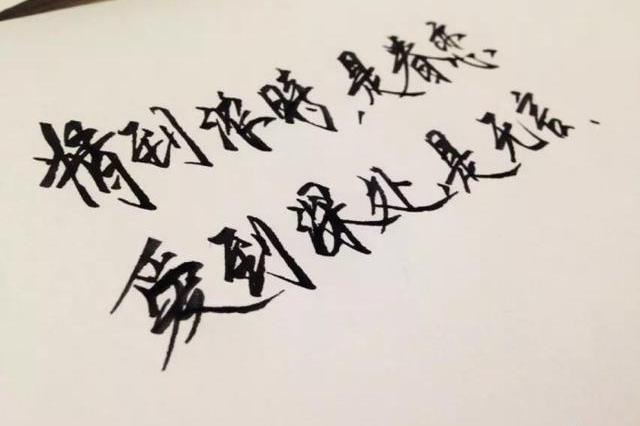 情到浓時,是眷恋
爱到深处,是无言.